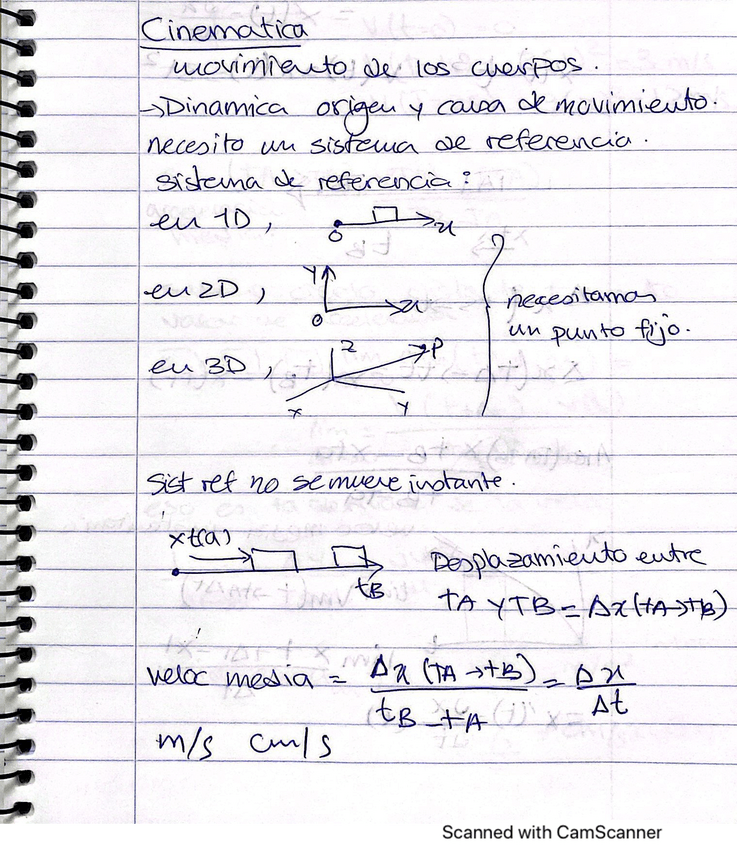 Cinematica
movimiento de los cuerpos.
→Dinamica origen y causa de movimiento.
necesito un sistema de referencia.
sistema de referencia:
en 1D,
O x
en 2D,
Y
O x
necesitamos
un punto fijo.
en 3D,
z P
x Y
Sist ref no se mueve instante.
x t(a)
tB
Desplazamiento entre
tA y TB = Δx (tA→tB)
veloc media = Δx (TA→tB) / tB - tA = Δx / Δt
m/s cm/s
Scanned with CamScanner